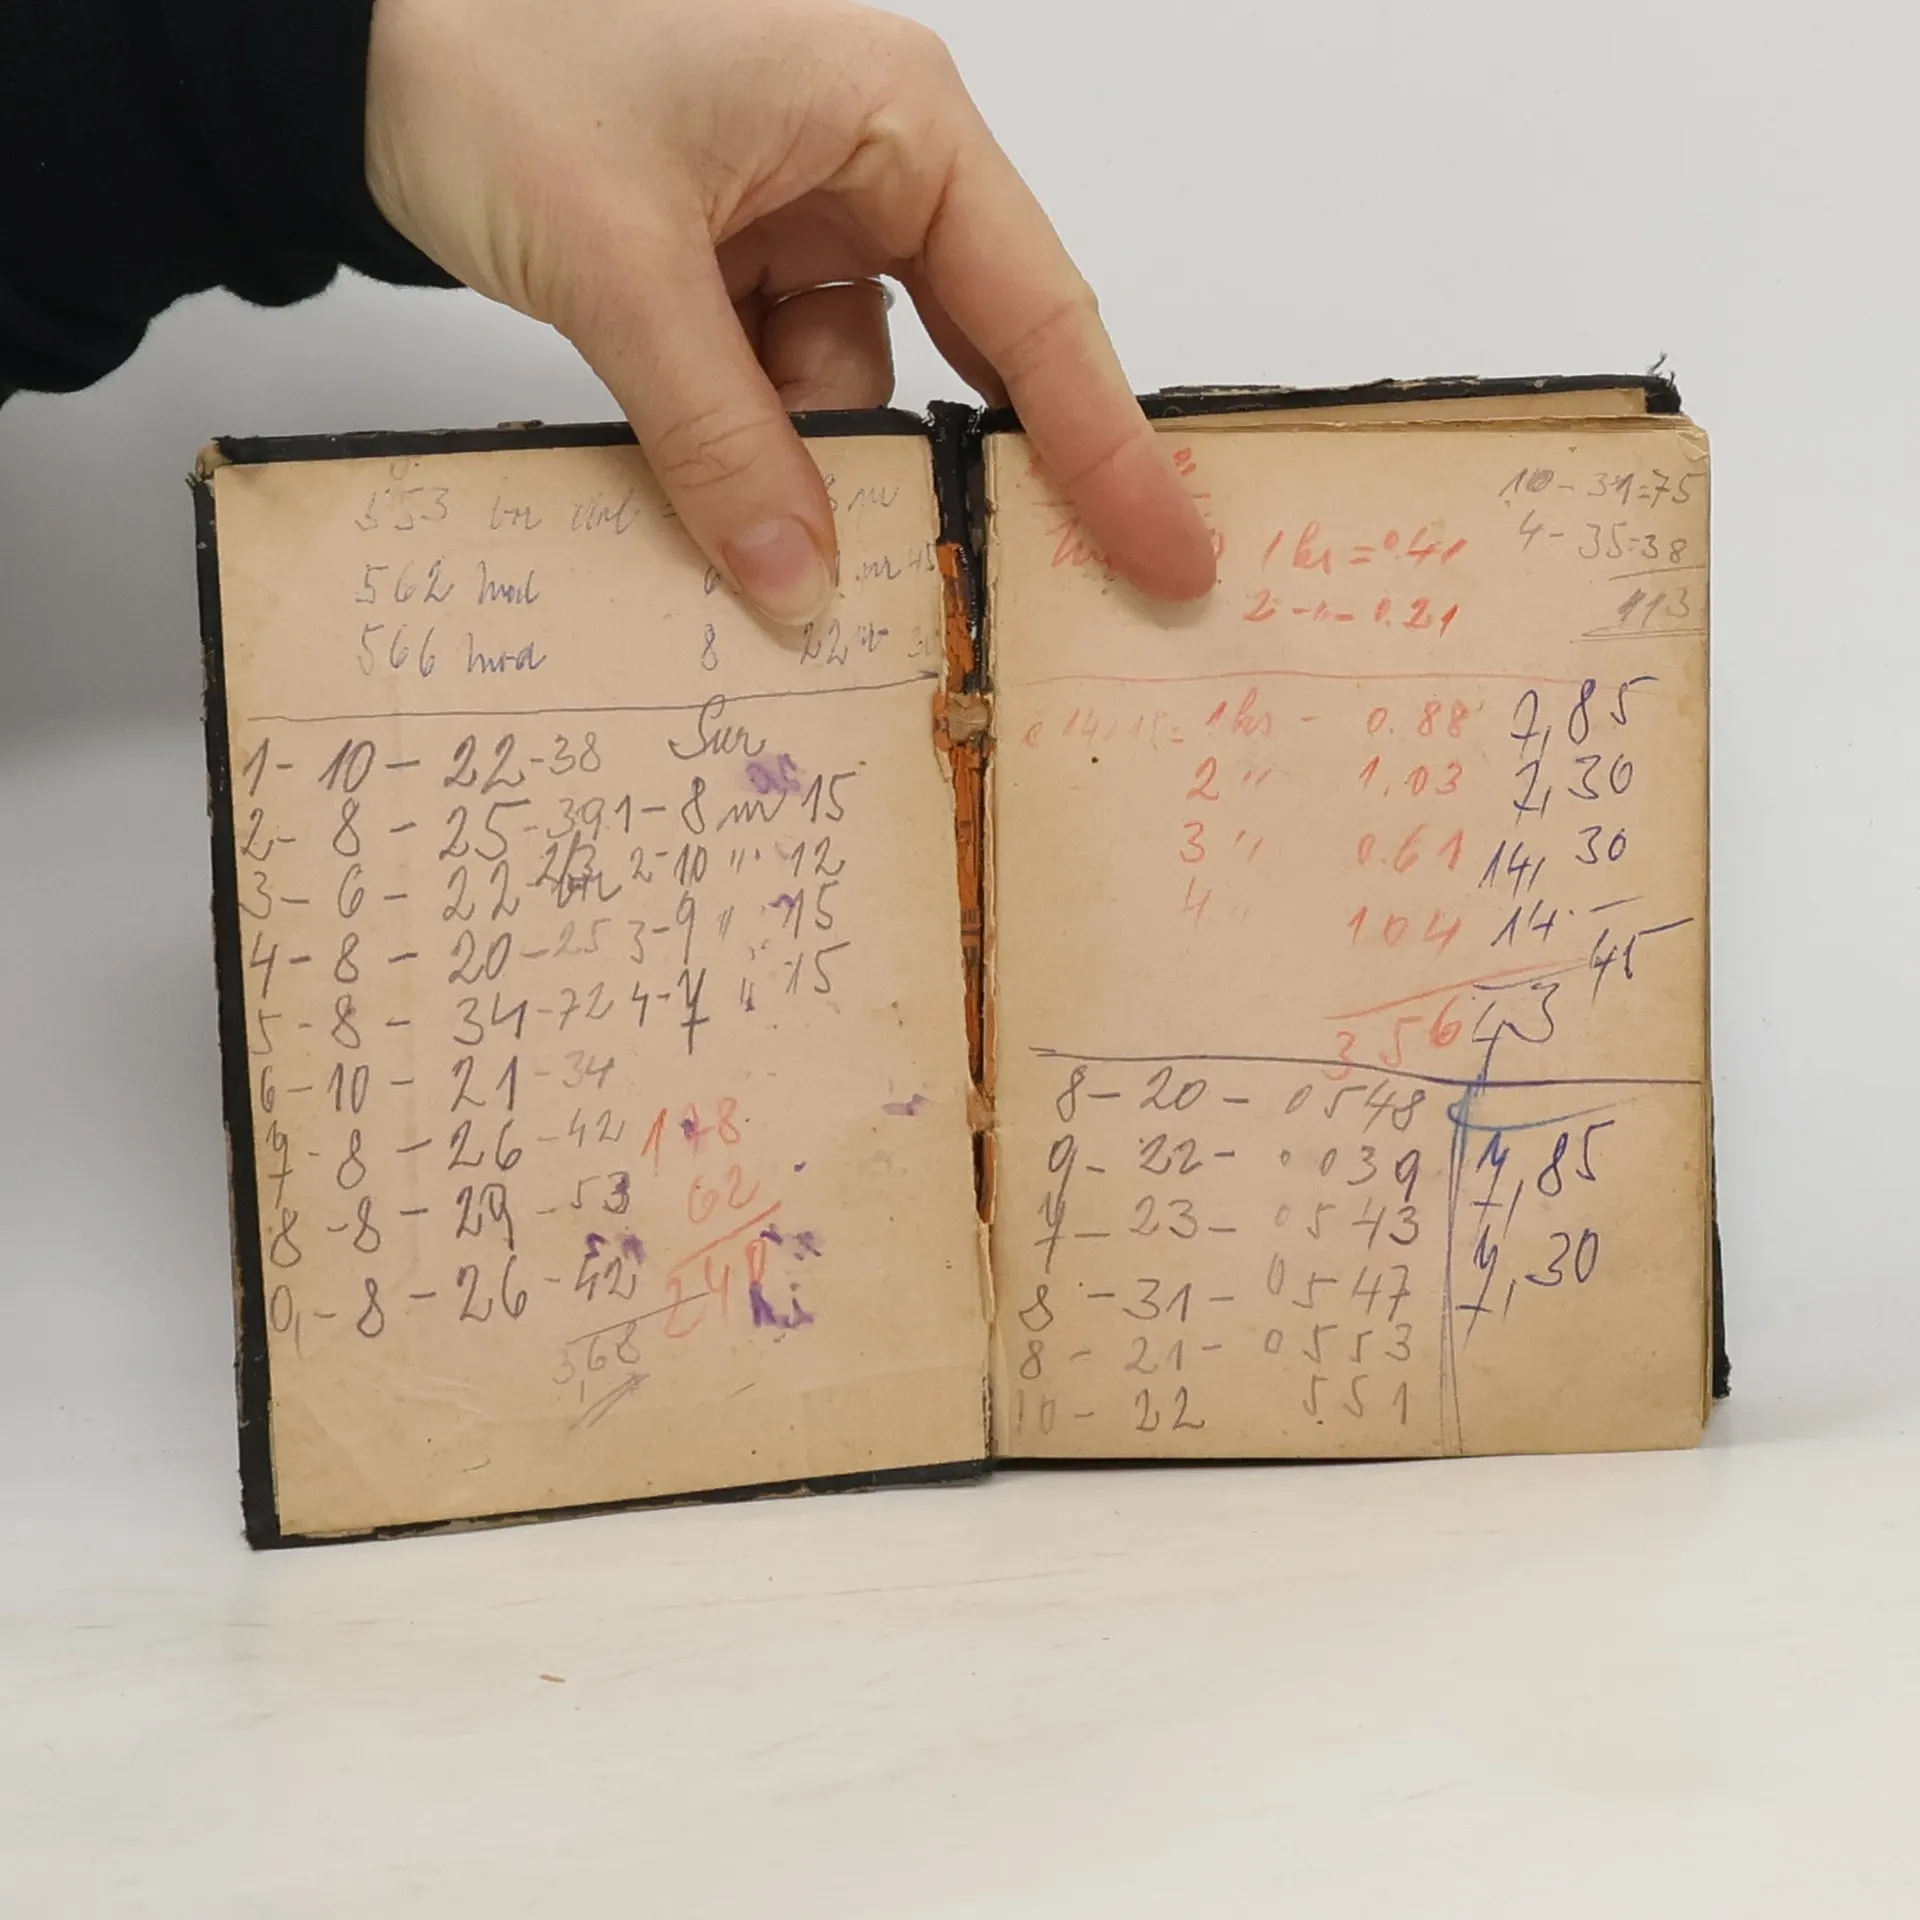 553
562 mod 6
566 mod 8 22
Sur
1- 10 - 22-38
2- 8 - 25-39 1- 8 m 15
3- 6 - 22 2-10 " 12
4- 8 - 20-25 3-9 " 15
5- 8 - 34-72 4-7 " 15
6-10 - 21-34
7-8 - 26-42 178
8-8 - 29-53 62
0,-8 - 26-42 240
3,68
10-31=75
1 ks = 0.41 4-35=38
2 -"- 0.21 113
14,15= 1 ks - 0.88 7,85
2 " 1.03 7,30
3 " 0.61 14,30
4 " 104 14.-
45
356 43
8- 20 - 0548
9- 22- 0039 7,85
7- 23- 0543
8 -31- 0547 7,30
8 - 21- 0553
10- 22 551